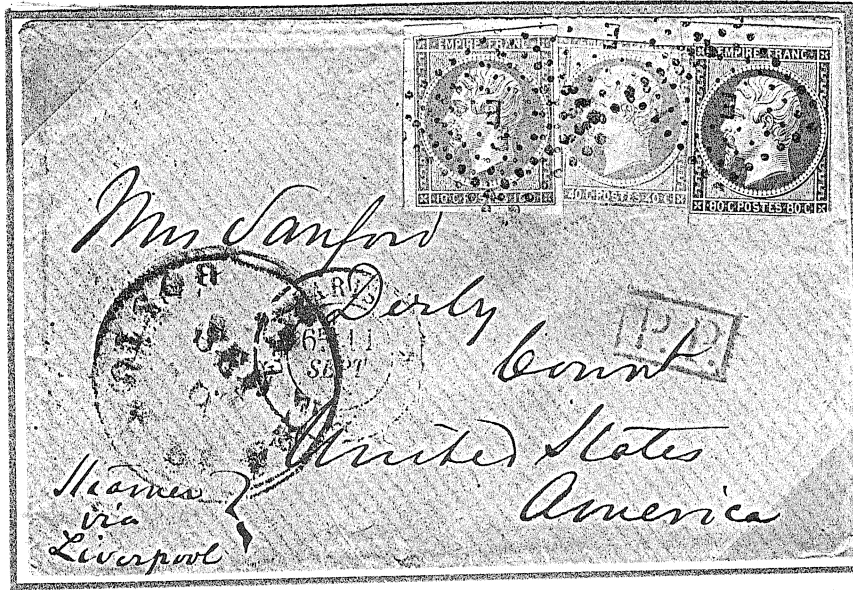 EMPIRE FRANC EMPIRE FRANC
10 C. POSTES 10 C. 40 C. POSTES 40 C. 80 C. POSTES 80 C.
Mrs Sanford
Derby
Conn
United States
America
P.D.
BOSTON
PARIS
11
SEPT
Steamer
via
Liverpool